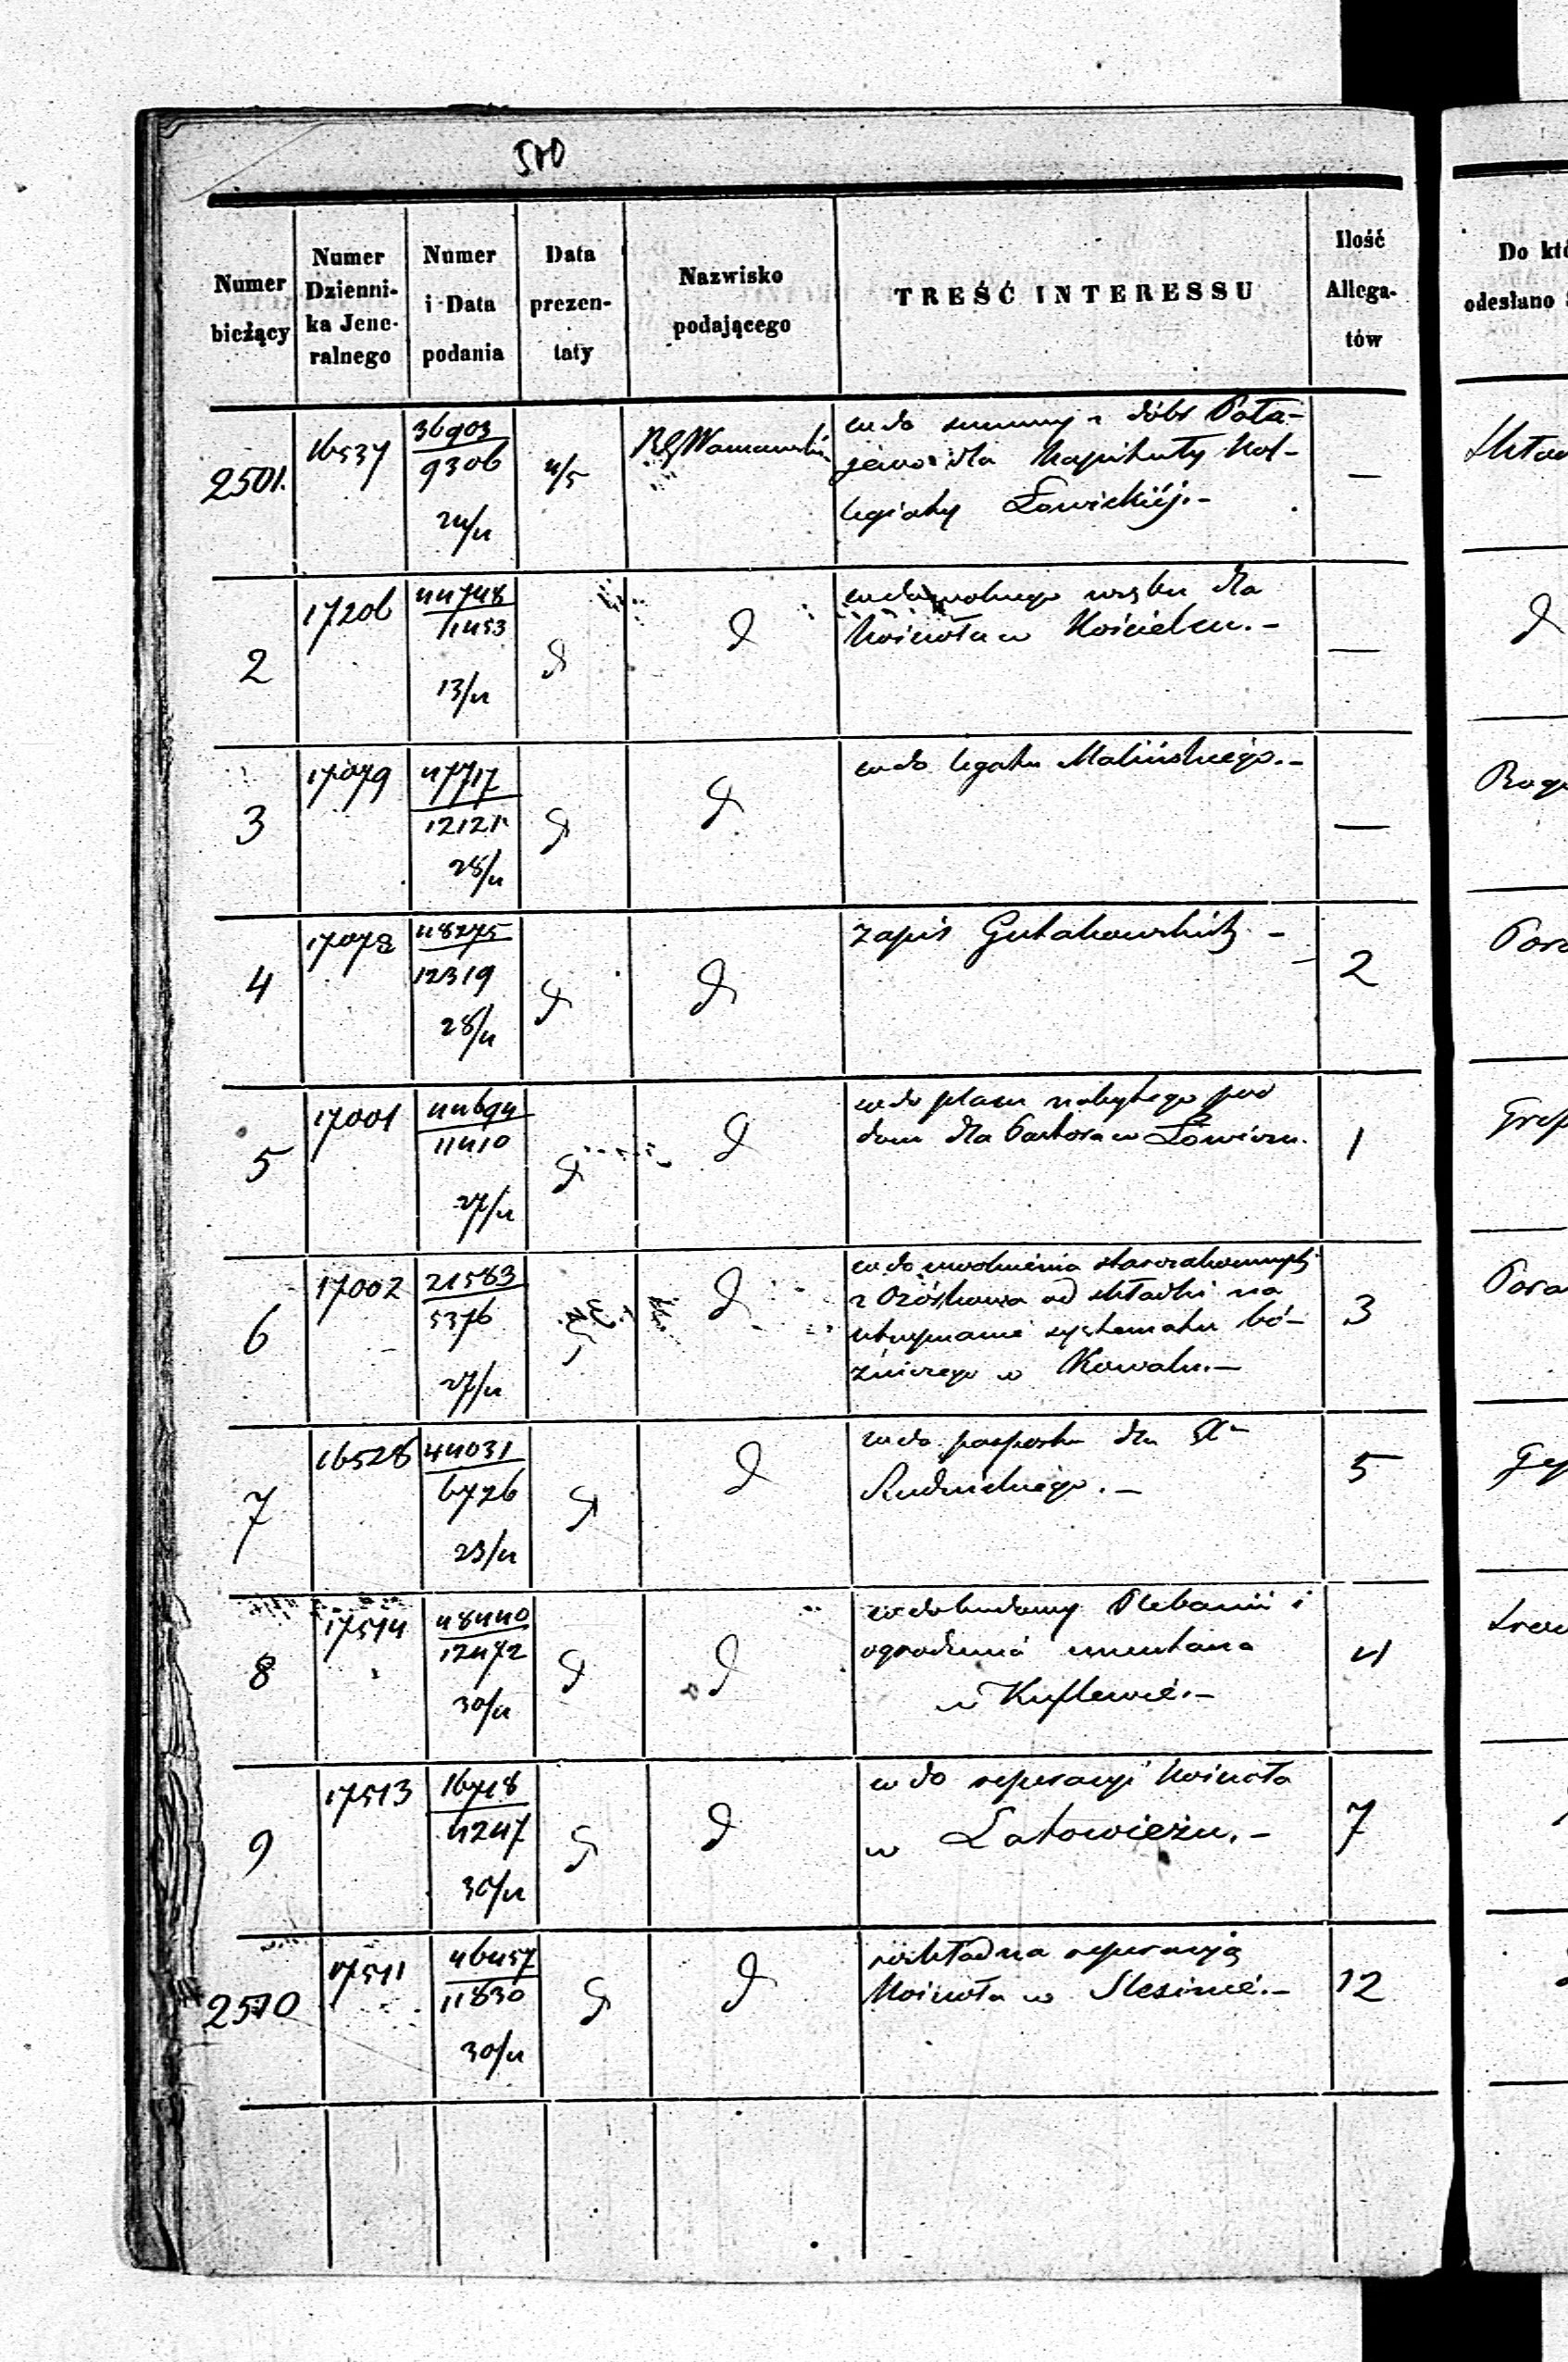 510
Numer bieżący
Numer Dzienni-ka Jene-ralnego
Numer i Data podania
Data prezen-taty
Nazwisko podającego
TREŚĆ INTERESSU
Ilość Allega-tów
Do któ
odesłano
2501. 16537 36903 / 9306 24/4 4/5 RG Warszawski
wdo summy z dóbr
dla Kapituły Kol-
legiaty Łowickiéj.- —
2 17206 44748 / 11453 13/4 d d
wdo wolnego dla
Kościoła w Kościelcu.- —
3 17079 47717 / 12121 28/4 d d
wdo legatu Malińskiego.- —
4 17078 48275 / 12319 28/4 d d
zapis Gutakowskich - 2
5 17001 44694 / 11410 27/4 d d
wdo placu nabytego pod
dom dla Pastora w Łowiczu. 1
6 17002 21583 / 5376 27/4 d d
wdo uwolnienia starozakonnych
z Ozorkowa od składki na
utrzymanie systematu bó-
źniczego w Kowalu.- 3
7 16528 44031 / 6726 23/4 d d
wdo paszportu dla X
Rudnickiego.- 5
8 17514 48440 / 12472 30/4 d d
wdo budowy Plebanii i
ogrodzenia cmentarza
w Kuflewie.- 4
9 17513 16718 / 4247 30/4 d d
wdo reperacyi kościoła
w Latowiczu.- 7
2510 17511 46457 / 11830 30/4 d d
rozkład na reperacyą
Kościoła w Slesinie.- 12